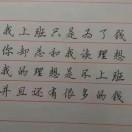 我上班只是为了钱
你却总和我谈理想
我的理想是不上班
并且还有很多的钱